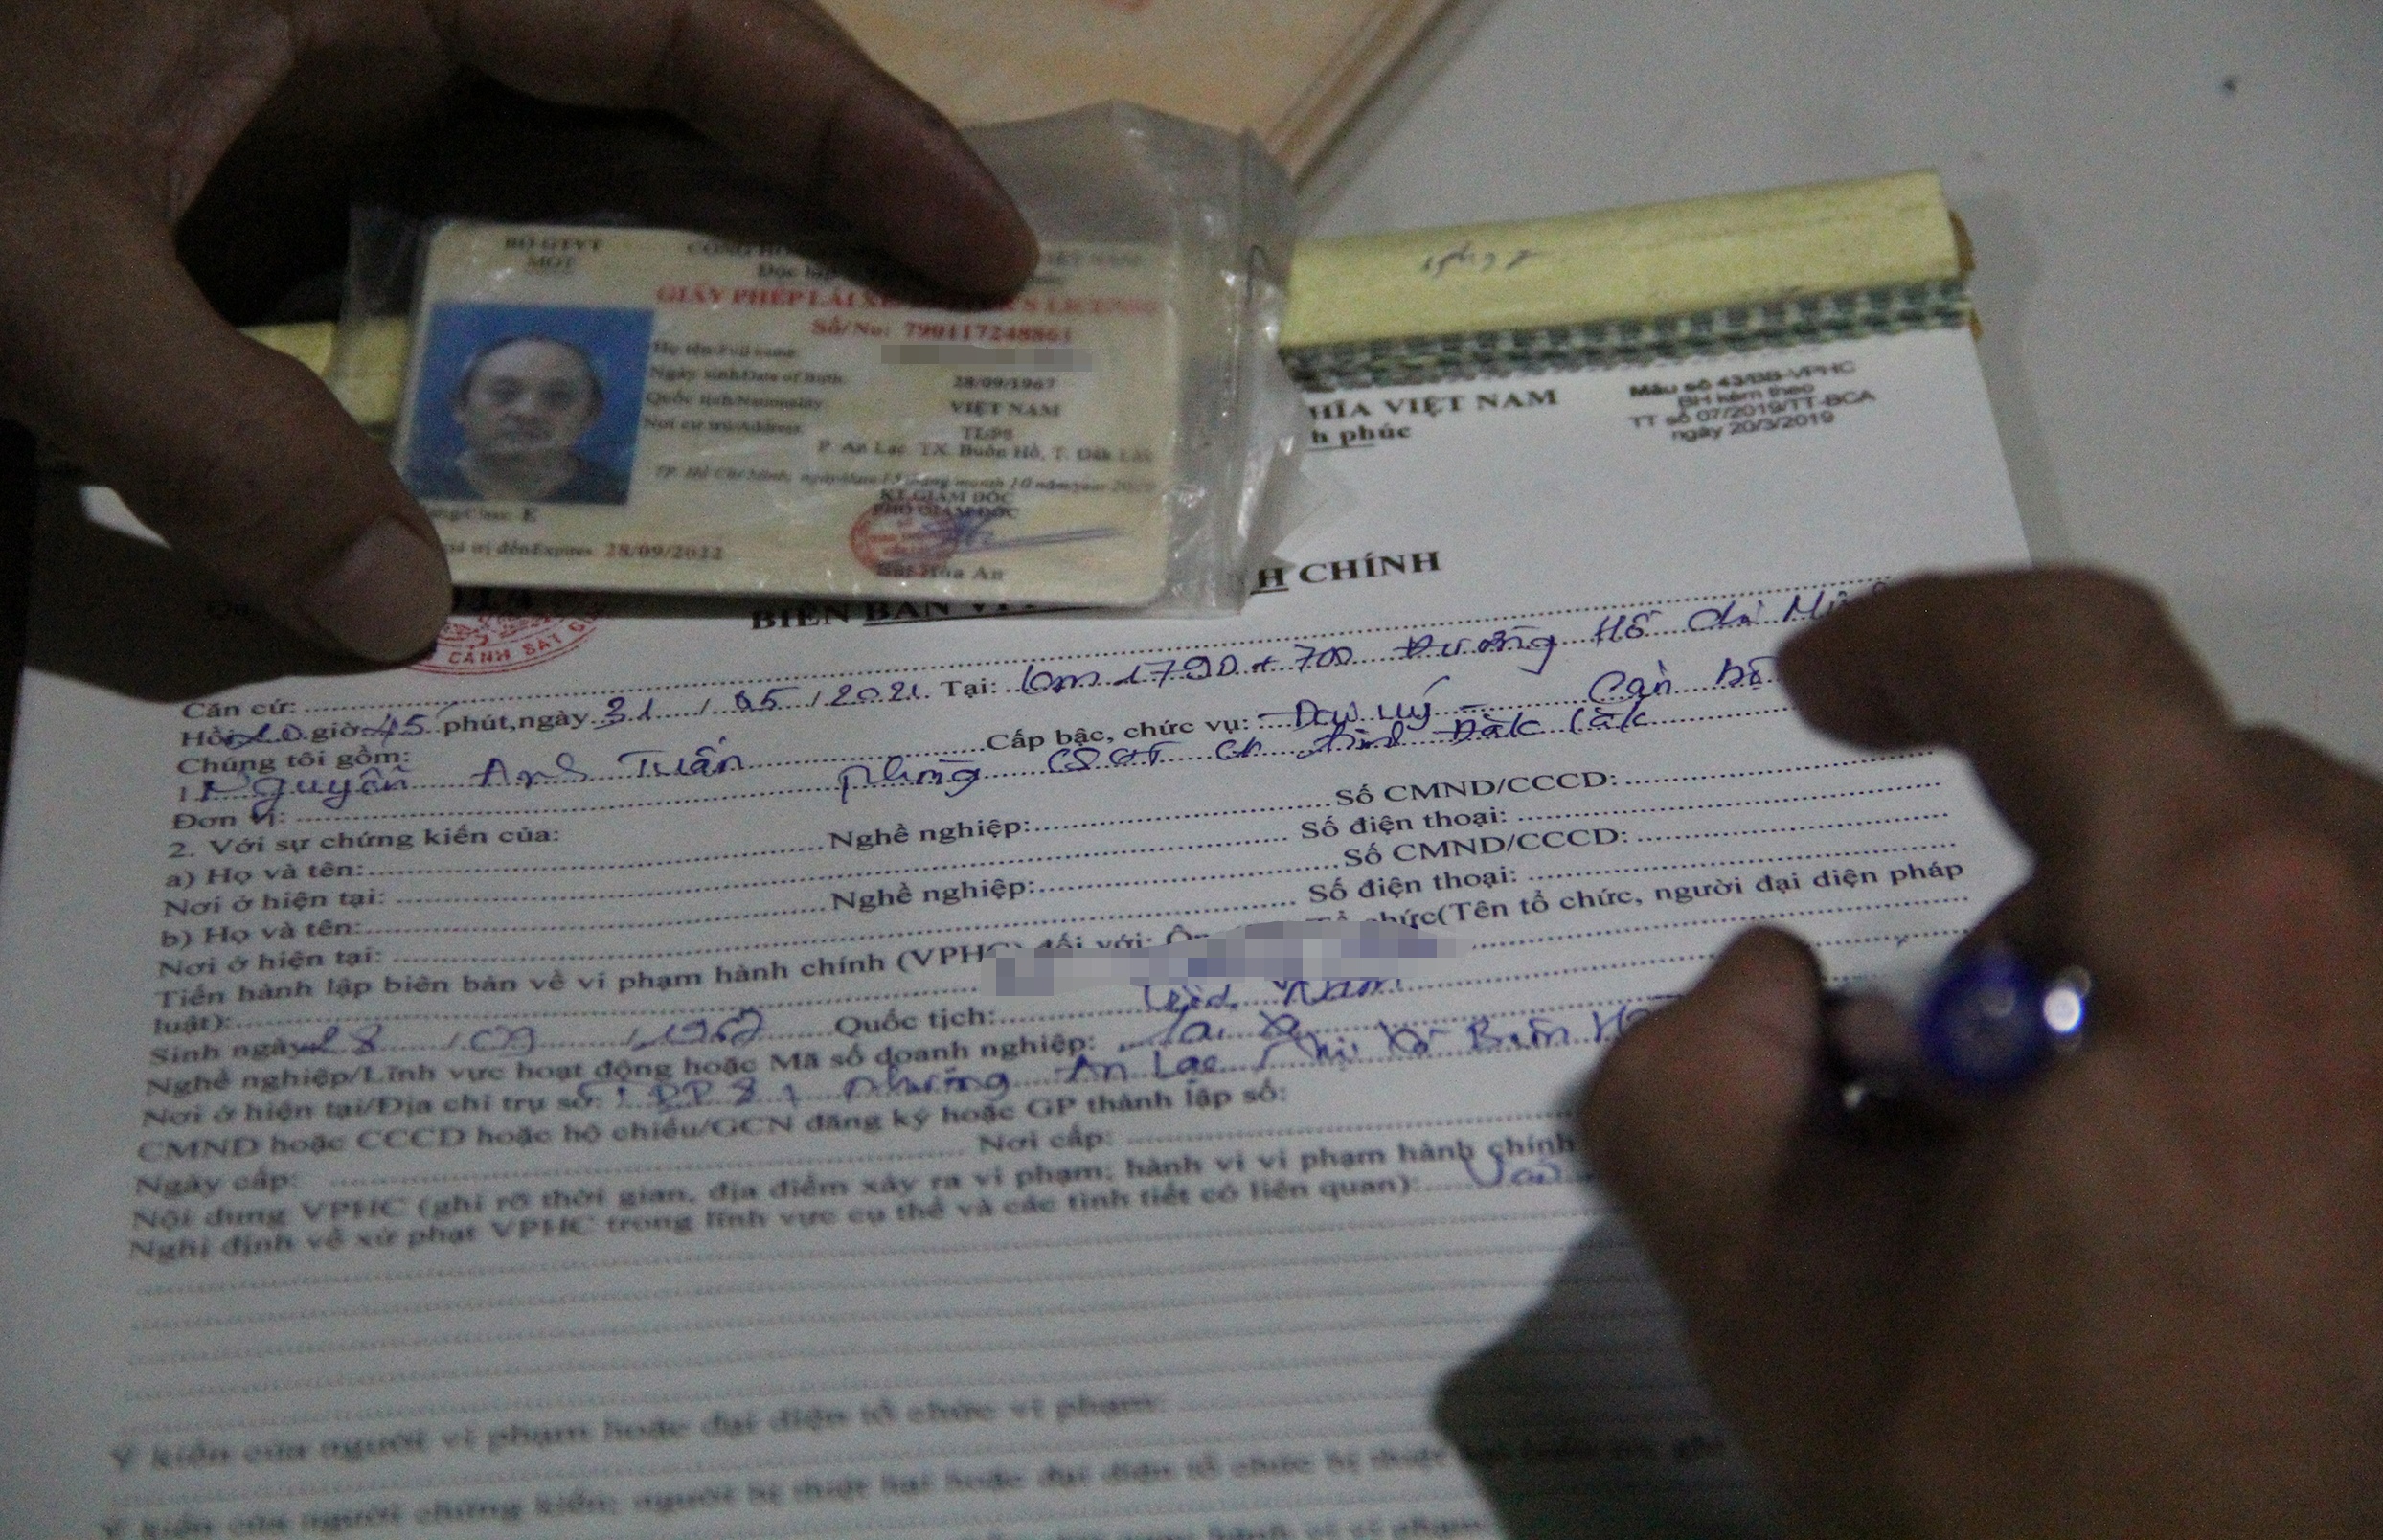 BỘ GTVT
MOT
GIẤY PHÉP LÁI XE
Số/No: 790117248861
Họ tên/Full name:
Ngày sinh/Date of Birth: 28/09/1967
Quốc tịch/Nationality: VIỆT NAM
Nơi cư trú/Address:
P. An Lạc, TX. Buôn Hồ, T. Đắk Lắk
TP. Hồ Chí Minh, ngày/date 15 tháng/month 10 năm/year
KT.GIÁM ĐỐC
PHÓ GIÁM ĐỐC
E
đến/Expires 28/09/2022
Bùi Hòa An
HĨA VIỆT NAM
h phúc
Mẫu số 43/BB-VPHC
BH kèm theo
TT số 07/2019/TT-BCA
ngày 20/3/2019
BIÊN BẢN VI H CHÍNH
CẢNH SÁT
Căn cứ:
Hồi 20 giờ 45 phút, ngày 31 / 05 / 2021 Tại: km 1790 + 700 Đường Hồ Chí
Chúng tôi gồm:
1. Nguyễn Anh Tuấn Cấp bậc, chức vụ: Đại uý - Cán bộ
Đơn vị: phòng CSGT CA tỉnh Đắk Lắk
2. Với sự chứng kiến của:
a) Họ và tên: Nghề nghiệp: Số CMND/CCCD:
Nơi ở hiện tại: Số điện thoại:
b) Họ và tên: Nghề nghiệp: Số CMND/CCCD:
Nơi ở hiện tại: Số điện thoại:
Tiến hành lập biên bản về vi phạm hành chính (VPHC) đối với: Tổ chức(Tên tổ chức, người đại diện pháp
luật):
Sinh ngày 28 / 09 / 1967 Quốc tịch: Việt Nam
Nghề nghiệp/Lĩnh vực hoạt động hoặc Mã số doanh nghiệp: Lái xe
Nơi ở hiện tại/Địa chỉ trụ sở: TDP 8, phường An Lạc, Thị Xã Buôn Hồ
CMND hoặc CCCD hoặc hộ chiếu/GCN đăng ký hoặc GP thành lập số:
Ngày cấp: Nơi cấp:
Nội dung VPHC (ghi rõ thời gian, địa điểm xảy ra vi phạm; hành vi vi phạm hành chính
Nghị định về xử phạt VPHC trong lĩnh vực cụ thể và các tình tiết có liên quan):
Ý kiến của người vi phạm hoặc đại diện tổ chức vi phạm:
Ý kiến của người chứng kiến; người bị thiệt hại hoặc đại diện tổ chức bị thiệt